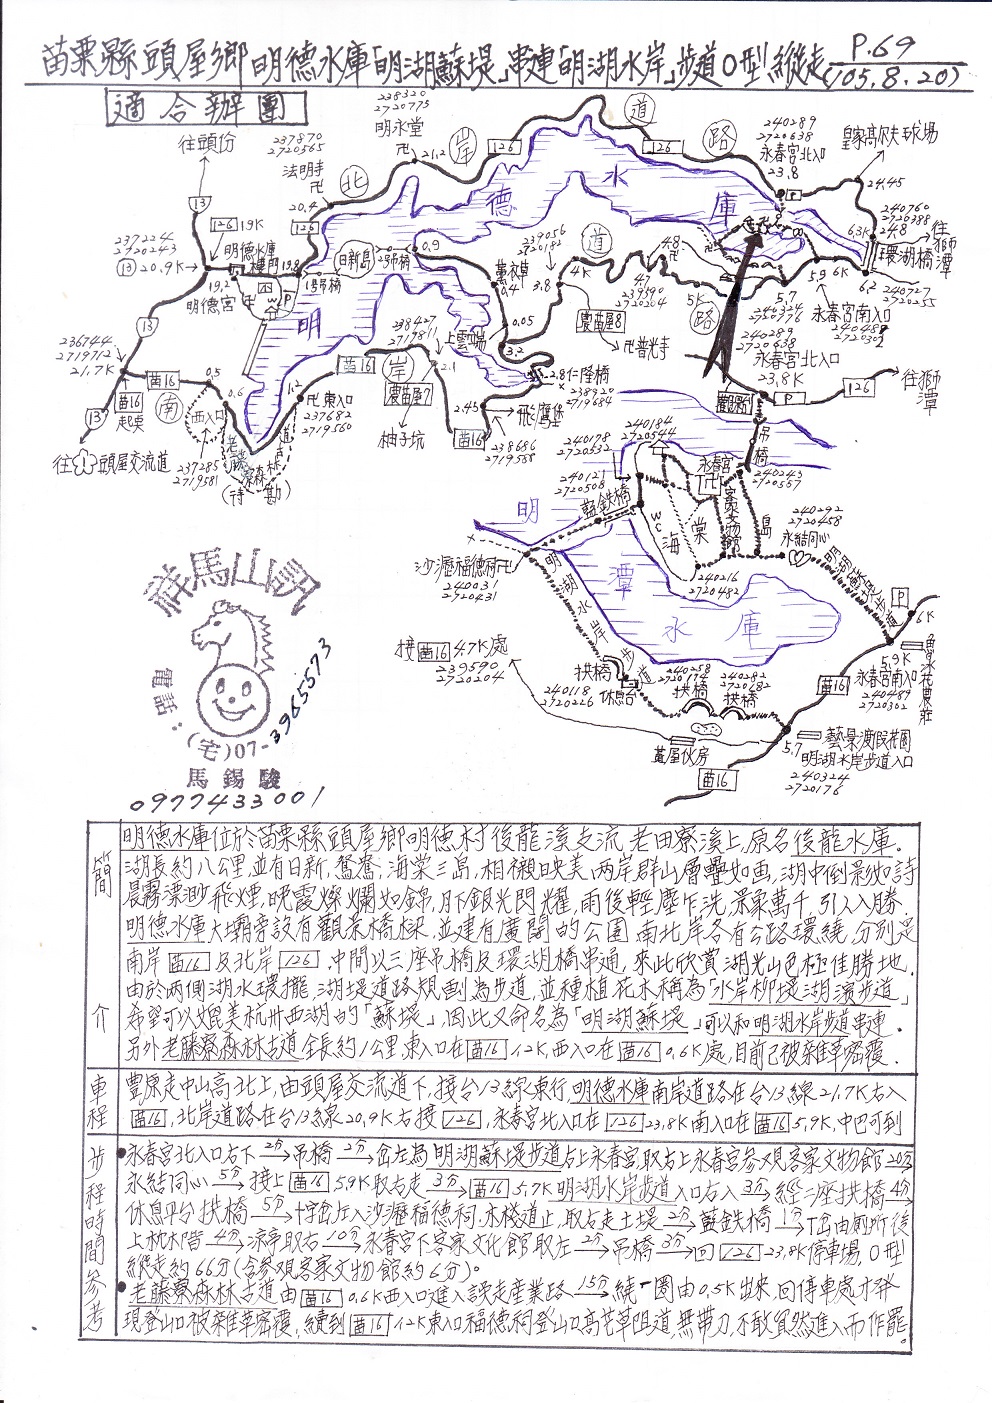 苗栗縣頭屋鄉明德水庫「明湖蘇堤」串連「明湖水岸」步道O型縱走
P.69
(105.8.20)
適合辦團
往頭份
237870
2720565
法明寺
238320
2720775
明永堂
21.2
126
北
岸
道
路
126
240289
2720638
永春宮北入口
23.8
P
皇家高爾夫球場
24.45
240760
2720388
24.8
環湖橋
往獅潭
6.2
240727
2720255
13
126 19K
237224
2720243
13 20.9K
明德水庫
樓門
19.8
20.4
126
日新島
1号吊橋
2号吊橋
0.9
德
水
庫
明
19.2
明德宮
P
239056
2720182
3.8
4K
道
4.8
4.7
239590
2720204
5K
路
5.7
240324
2720176
5.9 6K
永春宮南入口
240489
2720302
240289
2720638
永春宮北入口
23.8K
P
126
往獅潭
萬衣草
0.4
0.05
3.2
農苗屋8
卍普光寺
236744
2719712
21.7K
13
苗16
起奌
南
0.5
0.6
西入口
1.2
卍東入口
237682
2719560
苗16
岸
238427
2719811
上雲端
農苗屋7
2.1
2.45
柚子坑
苗16
飛鷹堡
238686
2719558
2.8仁隆橋
238920
2719684
往頭屋交流道
237285
2719581
老藤寮森林古道
(待勘)
吊橋
240184
2720544
240178
2720532
240121
2720508
藍鉄橋
永春宮
WC
海
棠
島
客家文物館
240243
2720557
240292
2720458
永結同心
明湖蘇堤步道
240216
2720482
沙瀝福德祠卍
240031
2720431
明湖水岸步道
明
潭
水
庫
P
6K
5.9K
永春宮南入口
240489
2720302
苗16
接苗16 4.7K處
239590
2720204
拱橋
休息台
240118
2720226
240258
2720174
拱橋
240282
2720182
拱橋
蓋屋伙房
苗16
5.7
藝景渡假花園
明湖水岸步道入口
240324
2720176
群馬山訊
電話:
(宅)07-3985573
馬錫駿
0977433001
簡介
明德水庫位於苗栗縣頭屋鄉明德村後龍溪支流 老田寮溪上,原名後龍水庫.
湖長約八公里,並有日新,鴛鴦,海棠三島,相襯映美,兩岸群山層疊如画,湖中倒景如詩
晨霧漂渺飛煙,晚霞燦爛如錦,月下銀光閃耀,雨後輕塵乍洗,景象萬千,引人入勝.
明德水庫大壩旁設有觀景橋樑,並建有廣闊的公園,南北岸各有公路環繞,分別是
南岸苗16及北岸126.中間以三座吊橋及環湖橋串通,來此欣賞湖光山色極佳勝地.
由於兩側湖水環擁,湖堤道路規劃為步道,並種植花木稱為「水岸柳堤湖濱步道」
希望可以媲美杭州西湖的「蘇堤」,因此又命名為「明湖蘇堤」可以和明湖水岸步道串連.
另外老藤寮森林古道全長約1公里,東入口在苗16 1.2K,西入口在苗16 0.6K處,目前已被雜草密覆.
車程
豐原走中山高北上,由頭屋交流道下,接台13線東行,明德水庫南岸道路在台13線21.7K右入
苗16,北岸道路在台13線20.9K右接126,永春宮北入口在126 23.8K南入口在苗16 5.9K,中巴可到
步程時間參考
●永春宮北入口右下2分→吊橋2分→岔左為明湖蘇堤步道右上永春宮,取右上永春宮參观客家文物館20分→
永結同心5分→接上苗16 5.9K取右走3分→苗16 5.7K明湖水岸步道入口右入3分→經二座拱橋4分→
休息平台拱橋5分→十字岔左入沙瀝福德祠.木棧道止,取右走土堤2分→藍鉄橋1分→T岔由廁所後
上枕木階4分→涼亭取右10分→永春宮下客家文化館取左2分→吊橋3分→回126 23.8K停車場,O型
縱走約66分(含參观客家文物館約6分)。
●老藤寮森林古道由苗16 0.6K西入口進入誤走産業路15分→繞一圈由0.5K出來,回停車處才発
現登山口被雜草密覆,續到苗16 1.2K東入口福德祠登山口高茅草阻道,無帶刀,不敢貿然進入而作罷。